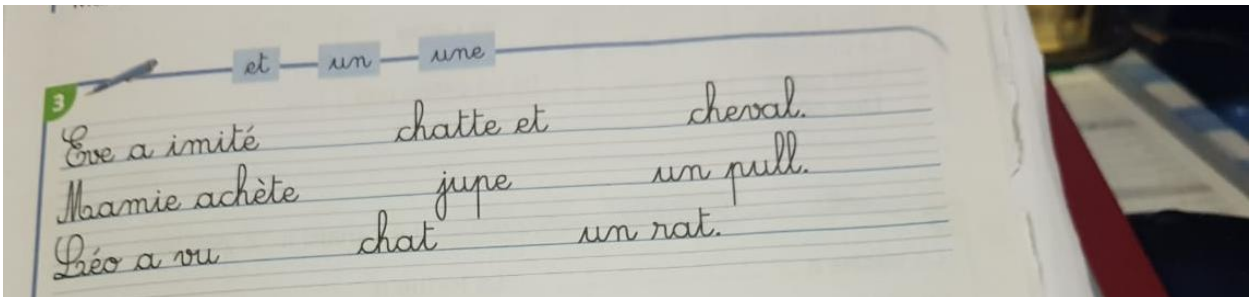 et un une
3
Eve a imité chatte et cheval.
Mamie achète jupe un pull.
Léo a vu chat un rat.